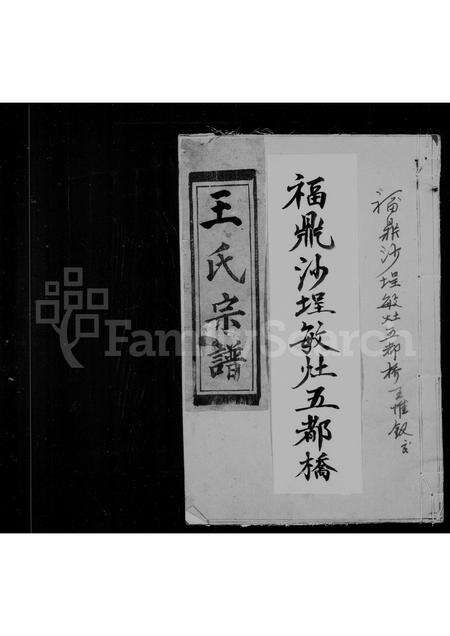 福鼎沙埕敏灶五都橋王惟
福鼎沙埕敏灶五都橋
王氏宗譜
FamilySearch